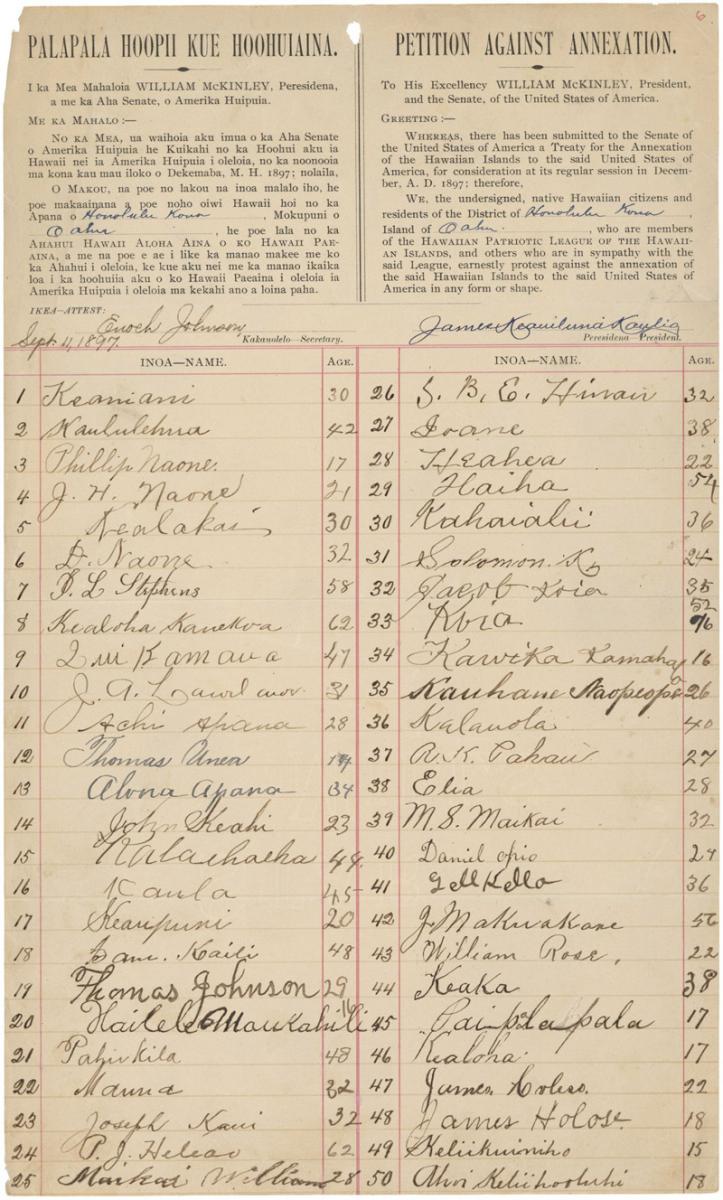 6
PALAPALA HOOPII KUE HOOHUIAINA.
I ka Mea Mahaloia WILLIAM McKINLEY, Peresidena,
a me ka Aha Senate, o Amerika Huipuia.
ME KA MAHALO :—
NO KA MEA, ua waihoia aku imua o ka Aha Senate
o Amerika Huipuia he Kuikahi no ka Hoohui aku ia
Hawaii nei ia Amerika Huipuia i oleloia, no ka noonooia
ma kona kau mau iloko o Dekemaba, M. H. 1897; nolaila,
O MAKOU, na poe no lakou na inoa malalo iho, he
poe makaainana a poe noho oiwi Hawaii hoi no ka
Apana o Honolulu Kona, Mokupuni o
Oahu, he poe lala no ka
AHAHUI HAWAII ALOHA AINA O KO HAWAII PAE-
AINA, a me na poe e ae i like ka manao makee me ko
ka Ahahui i oleloia, ke kue aku nei me ka manao ikaika
loa i ka hoohuiia aku o ko Hawaii Paeaina i oleloia ia
Amerika Huipuia i oleloia ma kekahi ano a loina paha.
IKEA—ATTEST:
Enoch Johnson
Sept. 11, 1897. Kakauolelo—Secretary.
PETITION AGAINST ANNEXATION.
To His Excellency WILLIAM McKINLEY, President,
and the Senate, of the United States of America.
GREETING :—
WHEREAS, there has been submitted to the Senate of
the United States of America a Treaty for the Annexation
of the Hawaiian Islands to the said United States of
America, for consideration at its regular session in Decem-
ber, A. D. 1897; therefore,
WE, the undersigned, native Hawaiian citizens and
residents of the District of Honolulu Kona,
Island of Oahu, who are members
of the HAWAIIAN PATRIOTIC LEAGUE OF THE HAWAII-
AN ISLANDS, and others who are in sympathy with the
said League, earnestly protest against the annexation of
the said Hawaiian Islands to the said United States of
America in any form or shape.
James Keauiluna Kaulia
Peresidena—President.
INOA—NAME. AGE.
1 Keaniani 30
2 Kaululehua 42
3 Phillip Naone. 17
4 J. H. Naone 21
5 Kealakai 30
6 D. Naone 32
7 L Stephens 58
8 Kealoha Kanekoa 62
9 Kamaua 47
10 J. A. 31
11 Achi Apana 28
12 Thomas Unea
13 Alona Apana 34
14 John Keahi 23
15 Kalaehaeha 44
16 Kaula 45
17 Keaupuni 20
18 Sam. Kaili 48
19 Thomas Johnson 29
20 Hailele Maukahili 16
21 Pahukila 48
22 Manna 32
23 Joseph Kaui 32
24 P. J. Heleao 62
25 Maikai William 28
INOA—NAME. AGE.
26 S. B. E. 32
27 Ioane 38
28 Heahea 22
29 Haiha 54
30 Kahaialii 36
31 Solomon. K 24
32 Jacob Koia 35
33 Koia 52
34 Kawika Kamaha 16
35 Kauhane Naopeope 26
36 Kalauola 40
37 R. K. Pahau 27
38 Elia 28
39 M. S. Maikai 32
40 Daniel opio
41 36
42 J. Makuakane 56
43 William Rose, 22
44 Keaka 38
45 Paipalapala 17
46 Kealoha. 17
47 James 22
48 James Holose 18
49 15
50 Ahoi Keliihooluhi 18